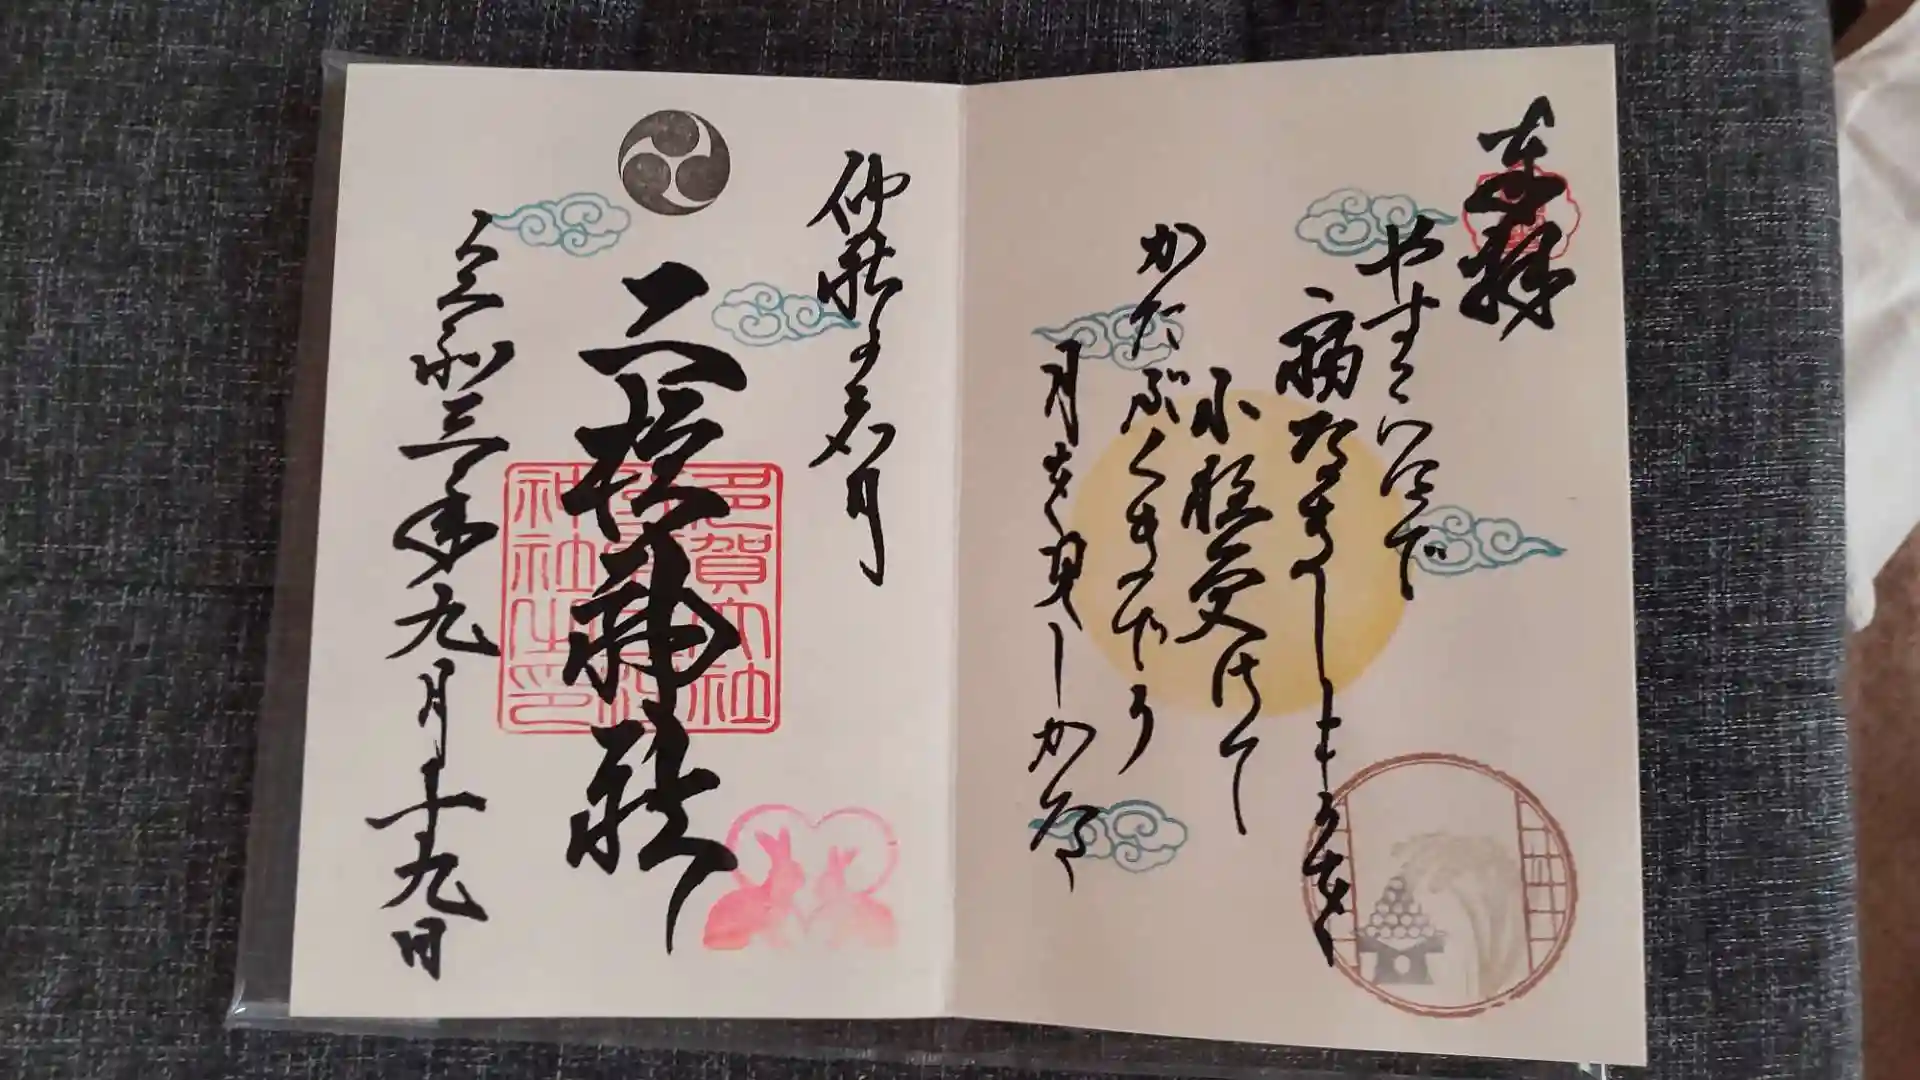 奉拝
やすらはで
寝なましものを
小夜更けて
かたぶくまでの
月を見しかな
仲秋の名月
二柱神社
令和三年九月十九日
多賀大社
神社之印